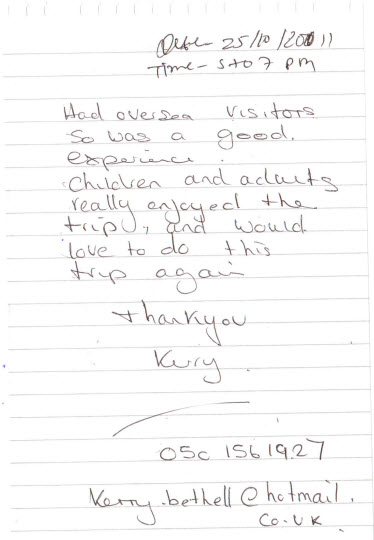 Date - 25/10/2011
Time - 5 to 7 pm
Had oversea visitors
So was a good.
experience.
Children and adults
really enjoyed the
trip, and would
love to do this
trip again
thankyou
Kerry.
050 1561927
Kerry.bethell@hotmail.
co.uk